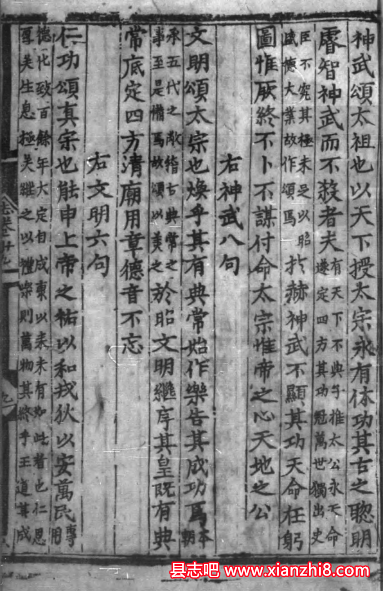 神武頌太祖也以天下授太宗永有休功其古之聰明
睿智神武而不殺者夫有天下不與子推太公永天命
遂定四方其功冠萬世獨出史
臣不究其極未足以昭
盛德大業故作頌焉於赫神武不顯其功天命在躬
圖惟厥終不卜不謀付命太宗惟帝之心天地之公
右神武八句
文明頌太宗也煥乎其有典常始作樂告其成功焉本朝
承五代之敝稽古典常之
事至是備焉故頌以美之於昭文明繼序其皇既有典
常底定四方清廟用章德音不忘
右文明六句
仁功頌真宗也能申上帝之祐以和戎狄以安萬民專用
德化致百餘年大定自成康以來未有如此者也仁恩
厚矣生息極矣繼之以禮樂則萬物其終乎王道其成
九
县志吧 www.xianzhi8.com